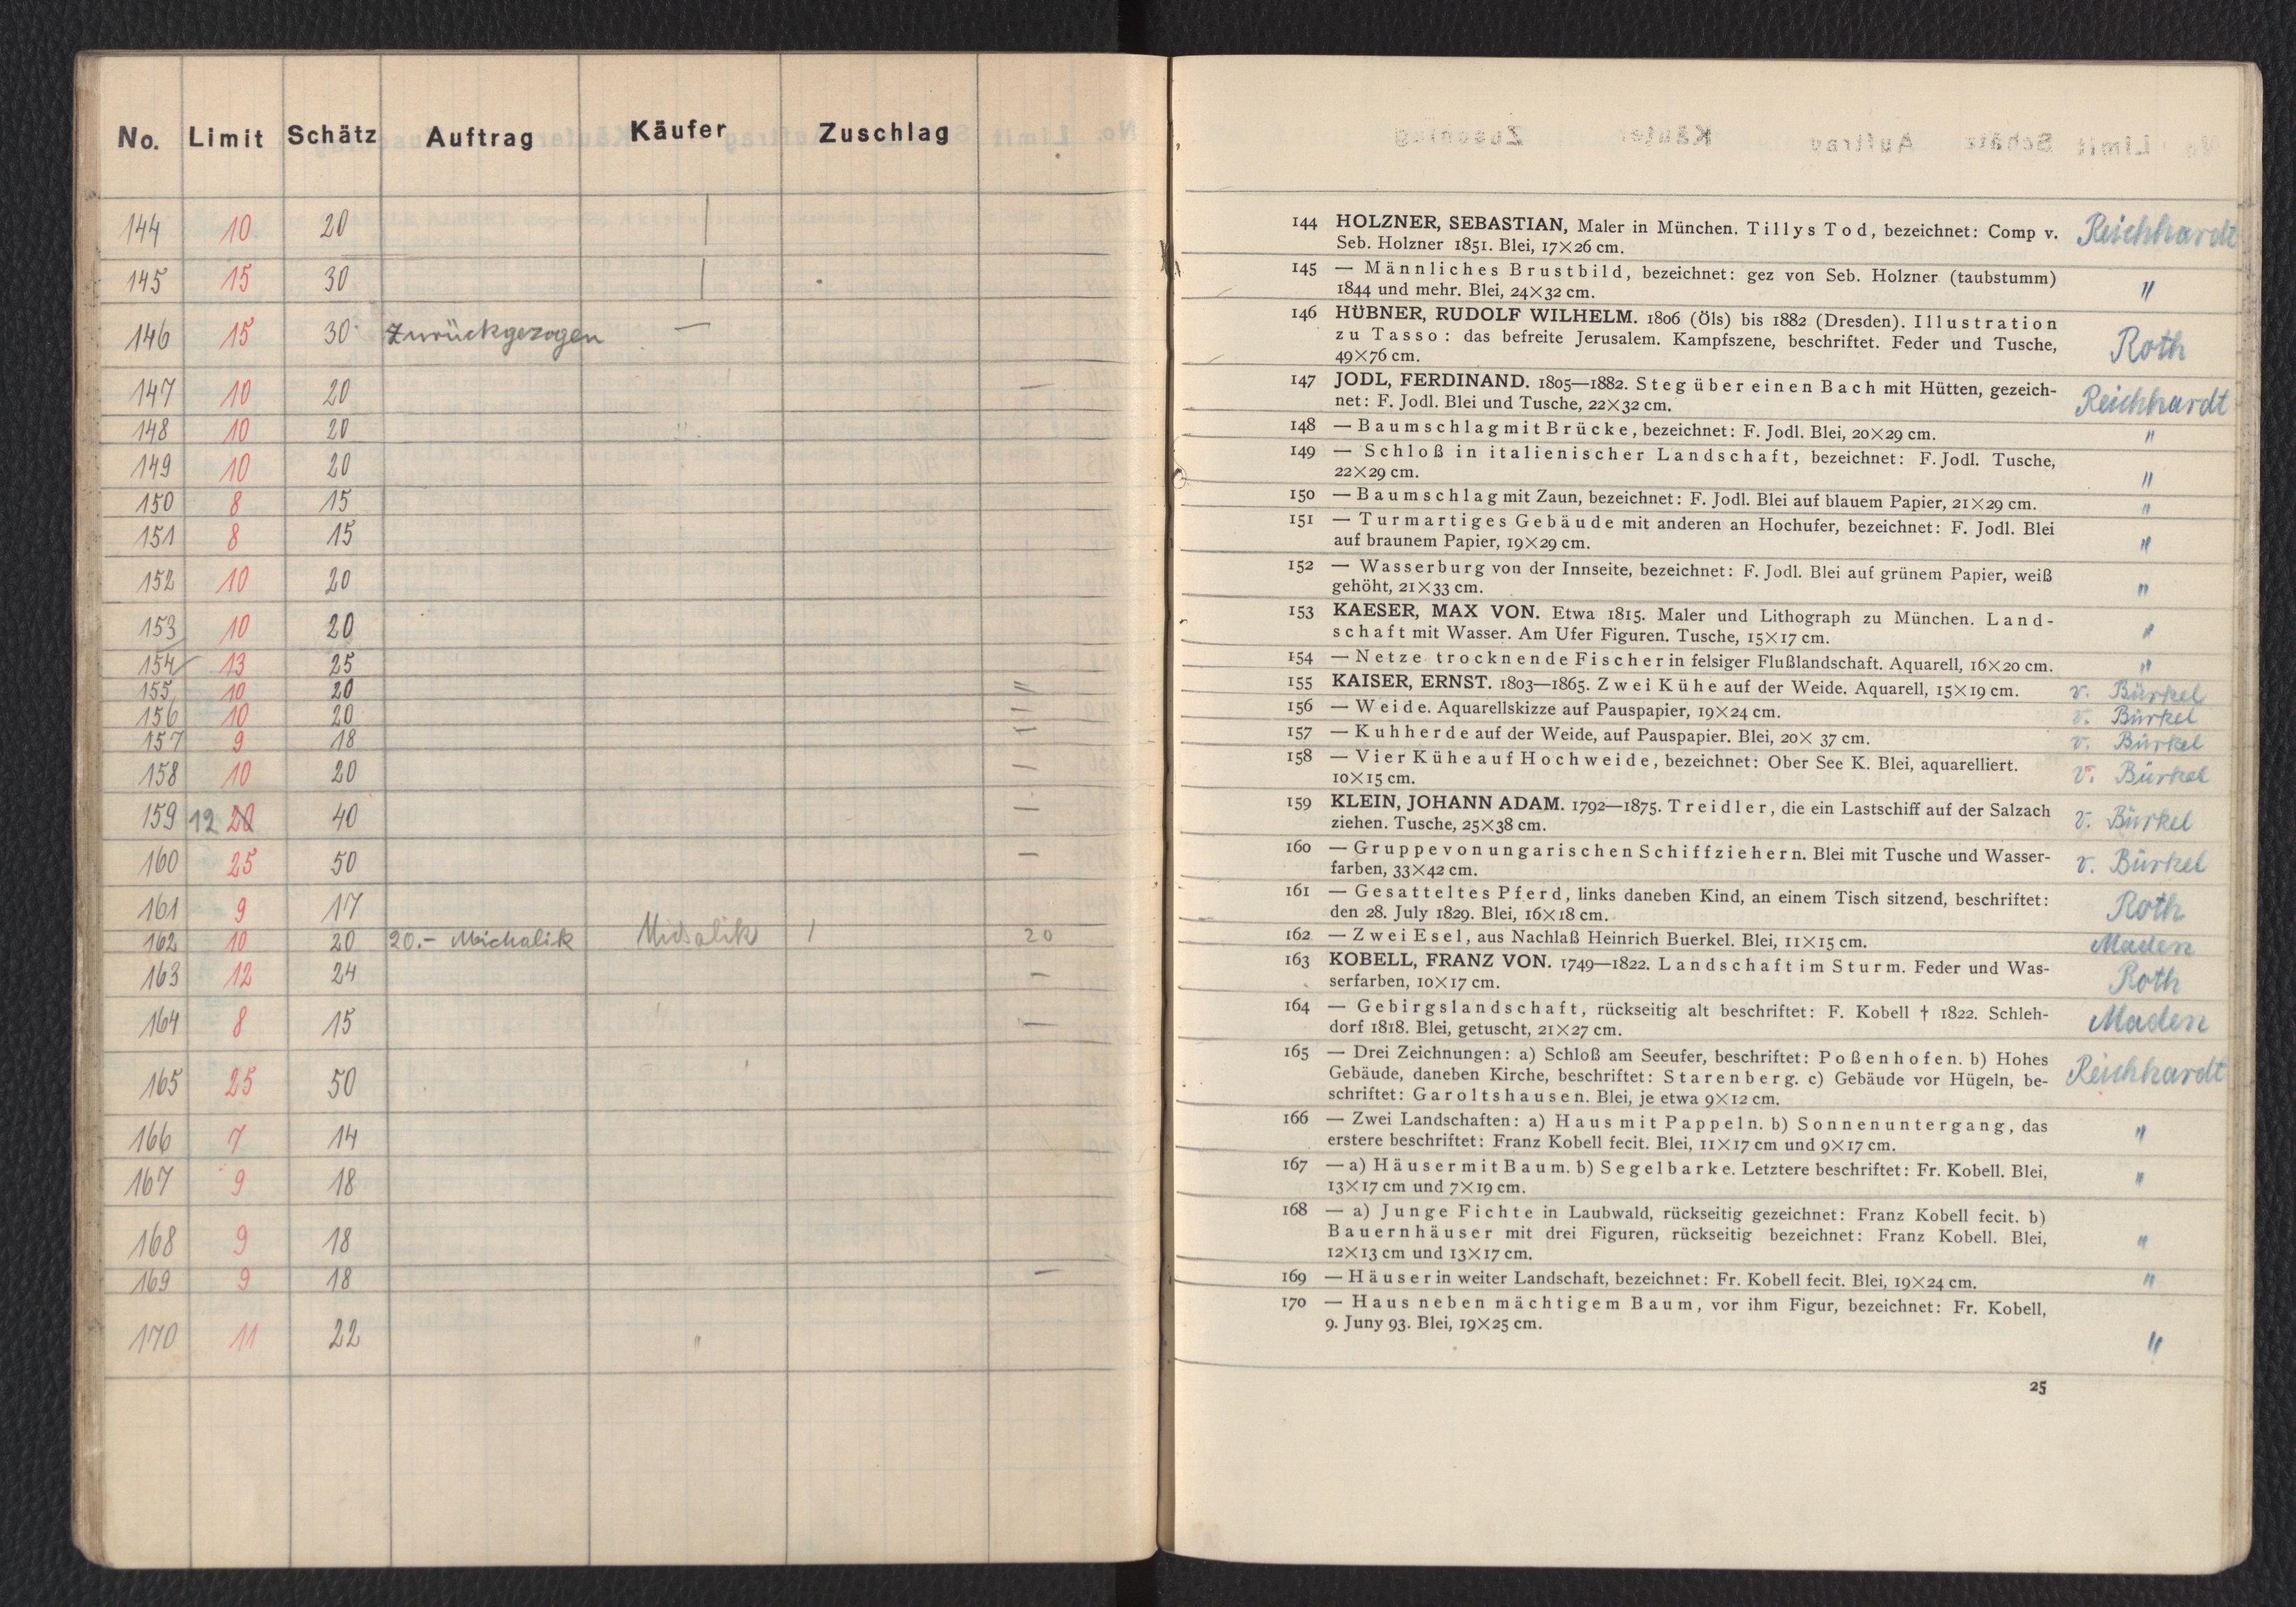 No. Limit Schätz Auftrag Käufer Zuschlag
144 10 20
145 15 30
146 15 30 Zurückgezogen —
147 10 20 —
148 10 20
149 10 20
150 8 15
151 8 15
152 10 20
153 10 20
154 13 25
155 10 20
156 10 20
157 9 18
158 10 20 —
159 12 20 40 —
160 25 50 —
161 9 17
162 10 20 20.- Michalik Michalik 20
163 12 24 —
164 8 15 —
165 25 50
166 7 14
167 9 18
168 9 18
169 9 18 —
170 11 22
144 HOLZNER, SEBASTIAN, Maler in München. Tillys Tod, bezeichnet: Comp v. Reichhardt
Seb. Holzner 1851. Blei, 17×26 cm.
145 — Männliches Brustbild, bezeichnet: gez von Seb. Holzner (taubstumm) "
1844 und mehr. Blei, 24×32 cm.
146 HÜBNER, RUDOLF WILHELM. 1806 (Öls) bis 1882 (Dresden). Illustration
zu Tasso: das befreite Jerusalem. Kampfszene, beschriftet. Feder und Tusche, Roth
49×76 cm.
147 JODL, FERDINAND. 1805—1882. Steg über einen Bach mit Hütten, gezeich- Reichhardt
net: F. Jodl. Blei und Tusche, 22×32 cm.
148 — Baumschlag mit Brücke, bezeichnet: F. Jodl. Blei, 20×29 cm. "
149 — Schloß in italienischer Landschaft, bezeichnet: F. Jodl. Tusche, "
22×29 cm.
150 — Baumschlag mit Zaun, bezeichnet: F. Jodl. Blei auf blauem Papier, 21×29 cm. "
151 — Turmartiges Gebäude mit anderen an Hochufer, bezeichnet: F. Jodl. Blei "
auf braunem Papier, 19×29 cm.
152 — Wasserburg von der Innseite, bezeichnet: F. Jodl. Blei auf grünem Papier, weiß "
gehöht, 21×33 cm.
153 KAESER, MAX VON. Etwa 1815. Maler und Lithograph zu München. Land- "
schaft mit Wasser. Am Ufer Figuren. Tusche, 15×17 cm.
154 — Netze trocknende Fischer in felsiger Flußlandschaft. Aquarell, 16×20 cm. "
155 KAISER, ERNST. 1803—1865. Zwei Kühe auf der Weide. Aquarell, 15×19 cm. v. Bürkel
156 — Weide. Aquarellskizze auf Pauspapier, 19×24 cm. v. Bürkel
157 — Kuhherde auf der Weide, auf Pauspapier. Blei, 20× 37 cm. v. Bürkel
158 — Vier Kühe auf Hochweide, bezeichnet: Ober See K. Blei, aquarelliert. v. Bürkel
10×15 cm.
159 KLEIN, JOHANN ADAM. 1792—1875. Treidler, die ein Lastschiff auf der Salzach v. Bürkel
ziehen. Tusche, 25×38 cm.
160 — Gruppe von ungarischen Schiffziehern. Blei mit Tusche und Wasser- v. Bürkel
farben, 33×42 cm.
161 — Gesatteltes Pferd, links daneben Kind, an einem Tisch sitzend, beschriftet: Roth
den 28. July 1829. Blei, 16×18 cm.
162 — Zwei Esel, aus Nachlaß Heinrich Buerkel. Blei, 11×15 cm. Maden
163 KOBELL, FRANZ VON. 1749—1822. Landschaft im Sturm. Feder und Was- Roth
serfarben, 10×17 cm.
164 — Gebirgslandschaft, rückseitig alt beschriftet: F. Kobell † 1822. Schleh- Maden
dorf 1818. Blei, getuscht, 21×27 cm.
165 — Drei Zeichnungen: a) Schloß am Seeufer, beschriftet: Poßenhofen. b) Hohes Reichhardt
Gebäude, daneben Kirche, beschriftet: Starenberg. c) Gebäude vor Hügeln, be-
schriftet: Garoltshausen. Blei, je etwa 9×12 cm.
166 — Zwei Landschaften: a) Haus mit Pappeln. b) Sonnenuntergang, das "
erstere beschriftet: Franz Kobell fecit. Blei, 11×17 cm und 9×17 cm.
167 — a) Häuser mit Baum. b) Segelbarke. Letztere beschriftet: Fr. Kobell. Blei, "
13×17 cm und 7×19 cm.
168 — a) Junge Fichte in Laubwald, rückseitig gezeichnet: Franz Kobell fecit. b)
Bauernhäuser mit drei Figuren, rückseitig bezeichnet: Franz Kobell. Blei, "
12×13 cm und 13×17 cm.
169 — Häuser in weiter Landschaft, bezeichnet: Fr. Kobell fecit. Blei, 19×24 cm. "
170 — Haus neben mächtigem Baum, vor ihm Figur, bezeichnet: Fr. Kobell, "
9. Juny 93. Blei, 19×25 cm.
25